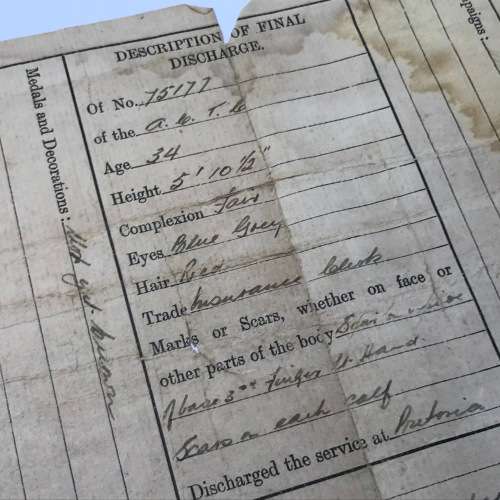 DESCRIPTION OF FINAL
DISCHARGE.
Of No. 75177
of the
Age 34
Height 5' 10½"
Complexion Fair
Eyes Blue Grey
Hair Red
Trade Insurance Clerk
Marks or Scars, whether on face or
other parts of the body Scar on
of base 3rd finger Hand.
Scars on each calf
Discharged the service at Pretoria
Medals and Decorations: Not yet known
paigns: